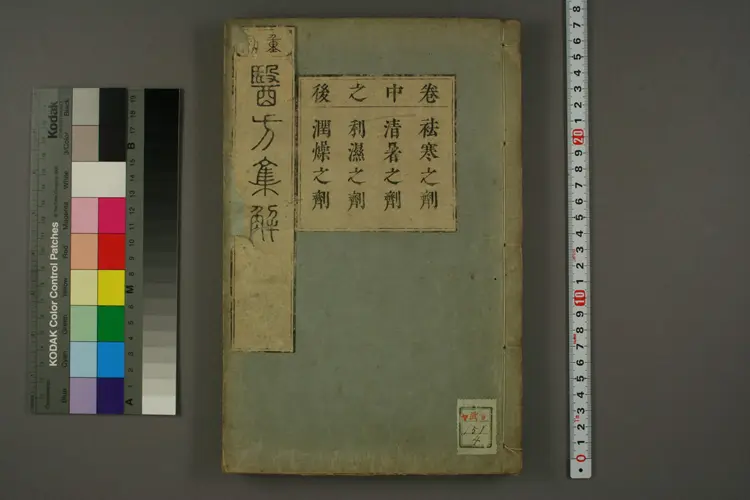 醫方集解
卷中之後
祛寒之劑
清暑之劑
利濕之劑
潤燥之劑
151
4
Kodak
KODAK Color Control Patches
Blue
Cyan
Green
Yellow
Red
Magenta
White
3/Color
Black
A 1 2 3 4 5 6 M 8 9 10 11 12 13 14 15 B 17 18 19
0 1 2 3 4 5 6 7 8 9 10 1 2 3 4 5 6 7 8 9 20 1 2 3 4 5 6 7 8